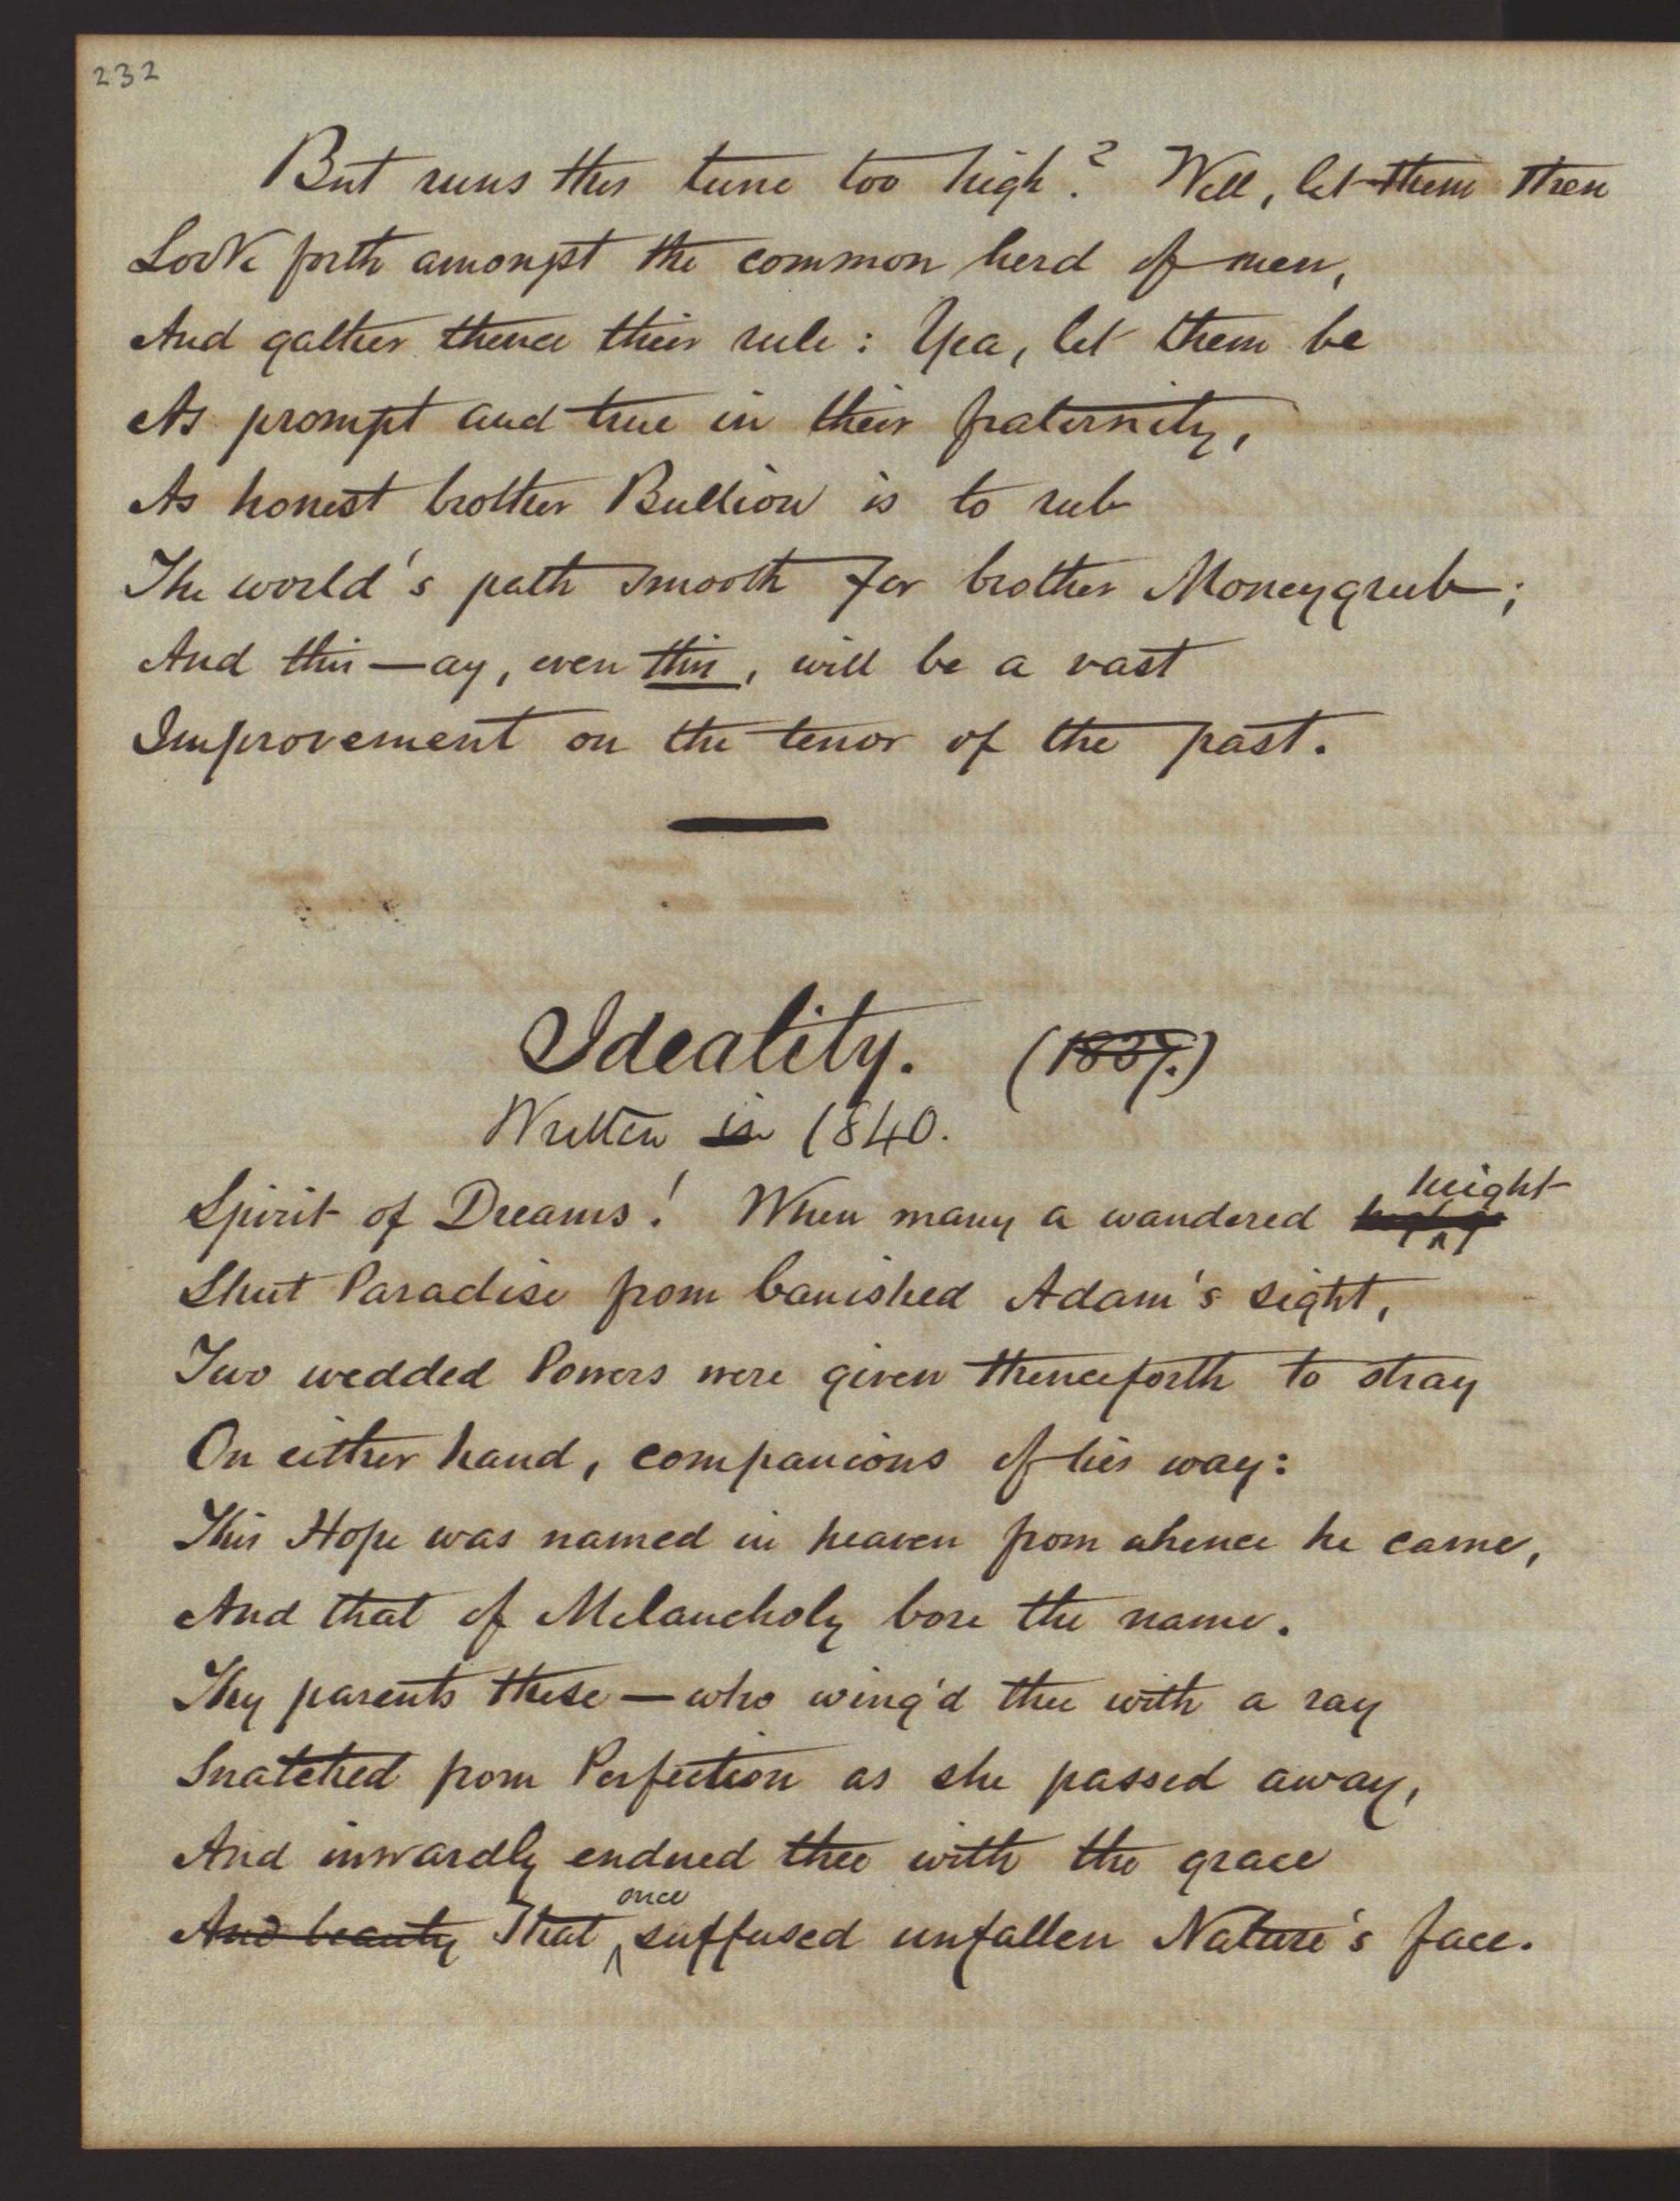 232
But runs this tune too high? Well, let them then
Look forth amongst the common herd of men,
And gather thence their rule: Yea, let them be
As prompt and true in their fraternity,
As honest brother Bullion is to rub
The world's path smooth for brother Moneygrub;
And this—ay, even this, will be a vast
Improvement on the tenor of the past.
Ideality. (1837.)
Written in 1840.
height
Spirit of Dreams! When many a wandered
Shut Paradise from banished Adam's sight,
Two wedded Powers were given thenceforth to stray
On either hand, companions of his way:
This Hope was named in heaven from whence he came,
And that of Melancholy bore the name.
Thy parents these—who wing'd thee with a ray
Snatched from Perfection as she passed away,
And inwardly endued thee with the grace
once
And beauty That suffused unfallen Nature's face.